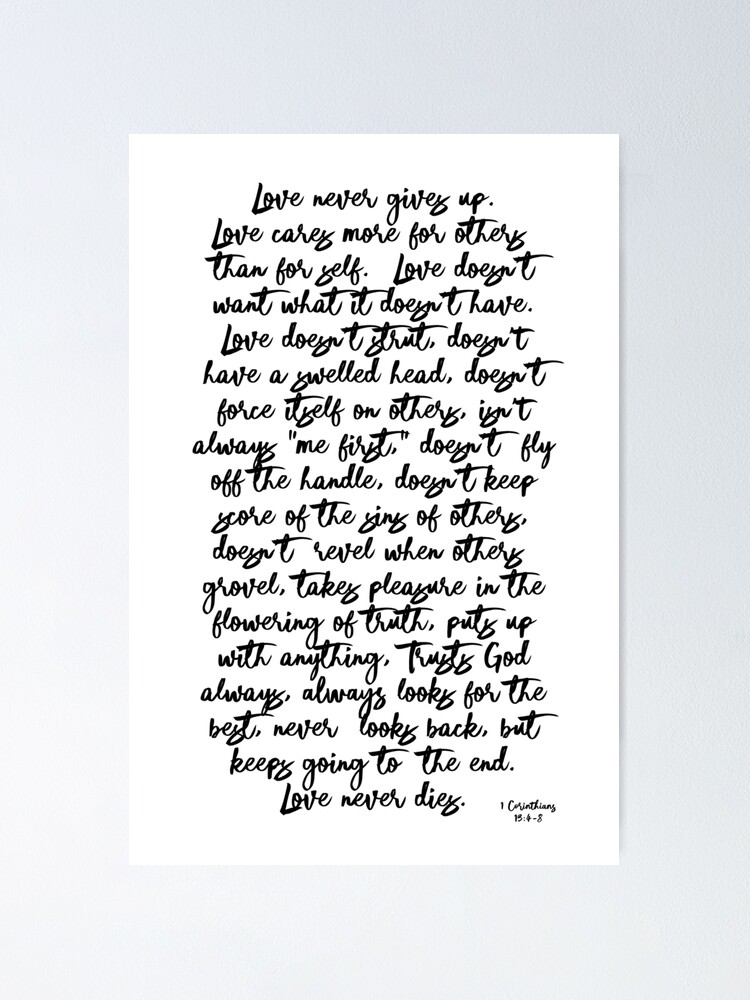 Love never gives up.
Love cares more for others
than for self. Love doesn't
want what it doesn't have.
Love doesn't strut, doesn't
have a swelled head, doesn't
force itself on others, isn't
always "me first," doesn't fly
off the handle, doesn't keep
score of the sins of others,
doesn't revel when others
grovel, takes pleasure in the
flowering of truth, puts up
with anything, Trusts God
always, always looks for the
best, never looks back, but
keeps going to the end.
Love never dies.
1 Corinthians
13:4-8